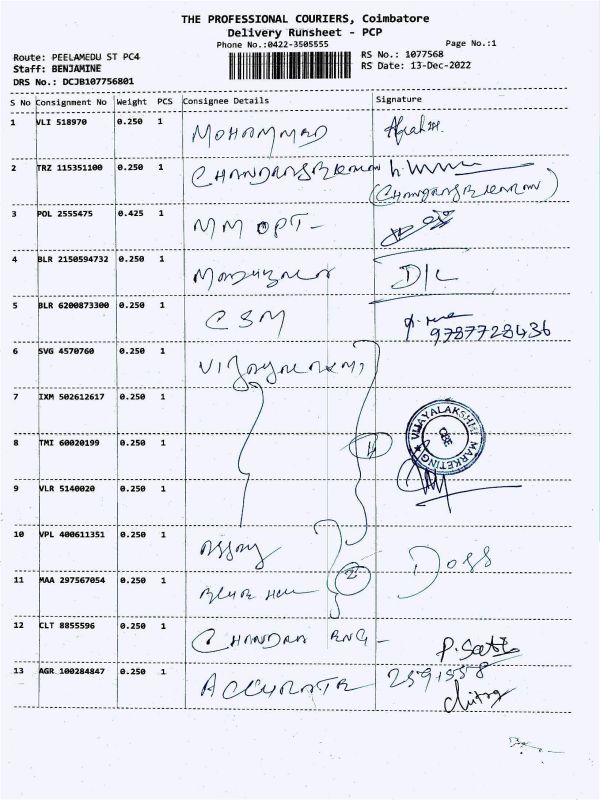 THE PROFESSIONAL COURIERS, Coimbatore
Delivery Runsheet - PCP
Phone No.:0422-3505555
Page No.:1
Route: PEELAMEDU ST PC4
Staff: BENJAMINE
DRS No.: DCJB107756801
RS No.: 1077568
RS Date: 13-Dec-2022
S No Consignment No Weight PCS Consignee Details Signature
1 VLI 518970 0.250 1 MOHAMMAD
2 TRZ 115351100 0.250 1
3 POL 2555475 0.425 1 MM OPT-
4 BLR 2150594732 0.250 1 D/L
5 BLR 6200873300 0.250 1 CSM
9787728436
6 SVG 4570760 0.250 1
7 IXM 502612617 0.250 1
VIJAYALAKSHMI MARKETING
8 TMI 60020199 0.250 1 4
9 VLR 5140020 0.250 1
10 VPL 400611351 0.250 1 Doss
11 MAA 297567054 0.250 1 2
12 CLT 8855596 0.250 1 CHANDRA ENG-
13 AGR 100284847 0.250 1 ACCURATE 2591558